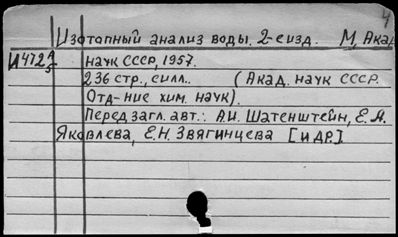 4
Изотопный анализ воды. 2-е изд. М, Акад.
И472 наук СССР, 1957.
5 236 стр., с илл. (Акад. наук СССР.
Отд-ние хим. наук).
Перед загл. авт.: А.И. Шатенштейн, Е.А.
Яковлева, Е.Н. Звягинцева [и др.].